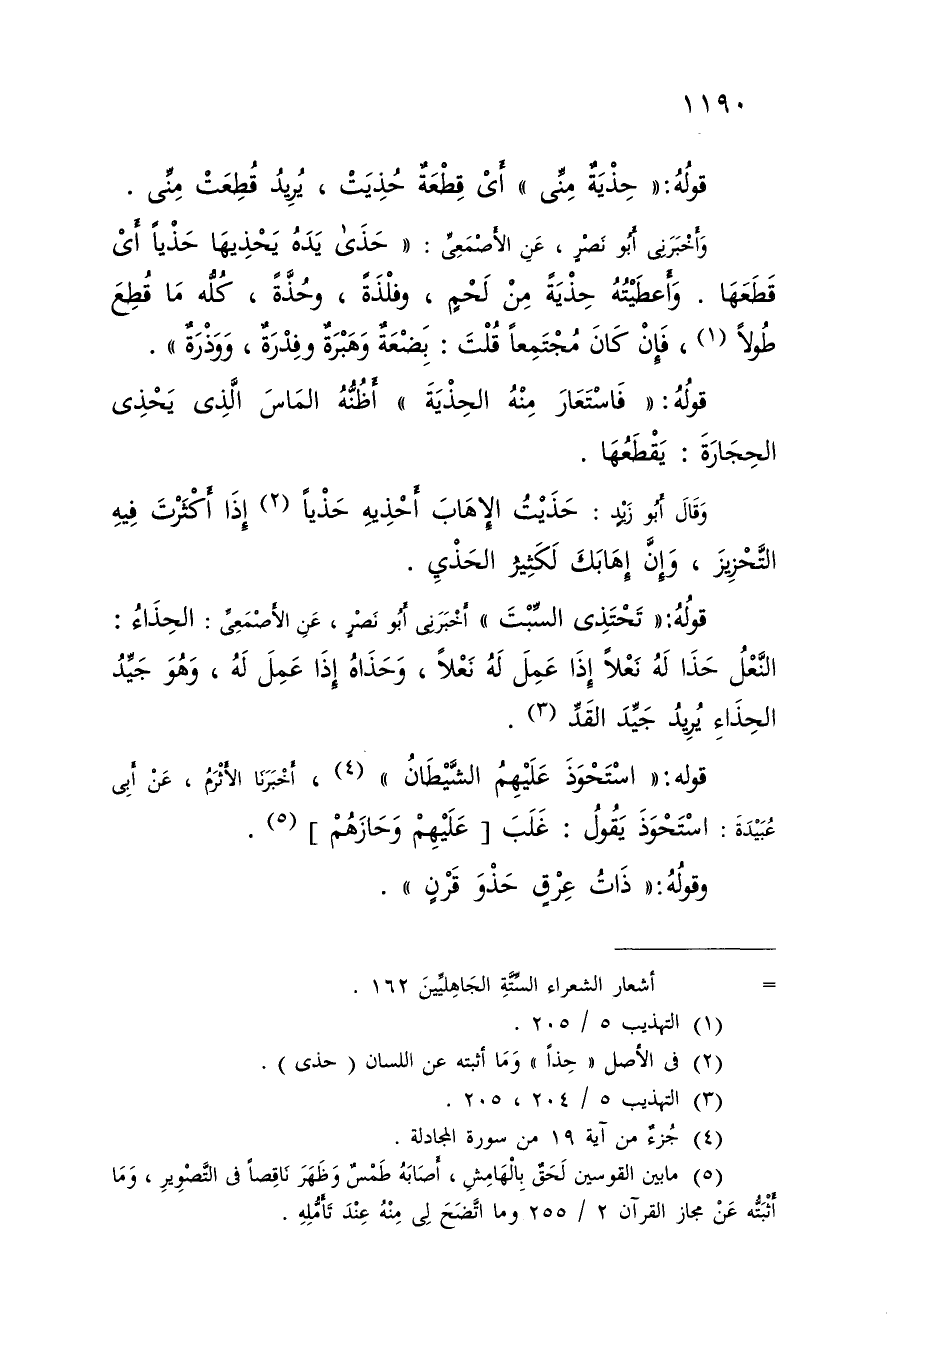 ١١٩٠
قولُهُ:« حِذْيَةٌ مِنِّى » أَىْ قِطْعَةٌ حُذِيَتْ ، يُرِيدُ قُطِعَتْ مِنِّى .
وَأَخْبَرَنِى أَبُو نَصْرٍ ، عَنِ الأَصْمَعِىِّ : « حَذَىٰ يَدَهُ يَحْذِيهَا حَذْياً أَىْ
قَطَعَهَا . وَأَعطَيْتُهُ حِذْيَةً مِنْ لَحْمٍ ، وفلْذَةً ، وحُذَّةً ، كُلُّه مَا قُطِعَ
طُولاً (١) ، فَإِنْ كَانَ مُجْتَمِعاً قُلْتَ : بَِضْعَةٌ وَهَبْرَةٌ وفِدْرَةٌ ، وَوَذْرَةٌ » .
قولُهُ:« فَاسْتَعَارَ مِنْهُ الحِذْيَةَ » أَظُنُّهُ المَاسَ الَّذِى يَحْذِى
الحِجَارَةَ : يَقْطَعُهَا .
وَقَالَ أَبُو زَيْدٍ : حَذَيْتُ الإِهَابَ أَحْذِيهِ حَذْياً (٢) إِذَا أَكْثَرْتَ فِيهِ
التَّحْزِيزَ ، وَإِنَّ إِهَابَكَ لَكَثِيرُ الحَذْيِ .
قولُهُ:« تَحْتَذِى السِّبْتَ » أَخْبَرَنِى أَبُو نَصْرٍ ، عَنِ الأَصْمَعِىِّ : الحِذَاءُ :
النَّعْلُ حَذَا لَهُ نَعْلاً إِذَا عَمِلَ لَهُ نَعْلاً ، وَحَذَاهُ إِذَا عَمِلَ لَهُ ، وَهُوَ جَيِّدُ
الحِذَاءِ يُرِيدُ جَيِّدَ القَدِّ (٣) .
قوله:« اسْتَحْوَذَ عَلَيْهِمُ الشَّيْطَانُ » (٤) ، أَخْبَرَنَا الأَثْرَمُ ، عَنْ أَبِى
عُبَيْدَةَ : اسْتَحْوَذَ يَقُولُ : غَلَبَ [ عَلَيْهِمْ وَحَازَهُمْ ] (٥) .
وقولُهُ:« ذَاتُ عِرْقٍ حَذْوَ قَرْنٍ » .
= أشعار الشعراء السِّتَّةِ الجَاهِليِّينَ ١٦٢ .
(١) التهذيب ٥ / ٢٠٥ .
(٢) فى الأصل « حِذاً » وَمَا أثبته عن اللسان ( حذى ) .
(٣) التهذيب ٥ / ٢٠٤ ، ٢٠٥ .
(٤) جُزءٌ من آية ١٩ من سورة المجادلة .
(٥) مابين القوسين لَحَقٌ بِالْهَامِشِ ، أَصَابَهُ طَمْسٌ وَظَهَرَ نَاقِصاً فى التَّصْوِيرِ ، وَمَا
أَثْبَتُّه عَنْ مجاز القرآن ٢ / ٢٥٥ وما اتَّضَحَ لِى مِنْهُ عِنْدَ تَأَمُّلِهِ .